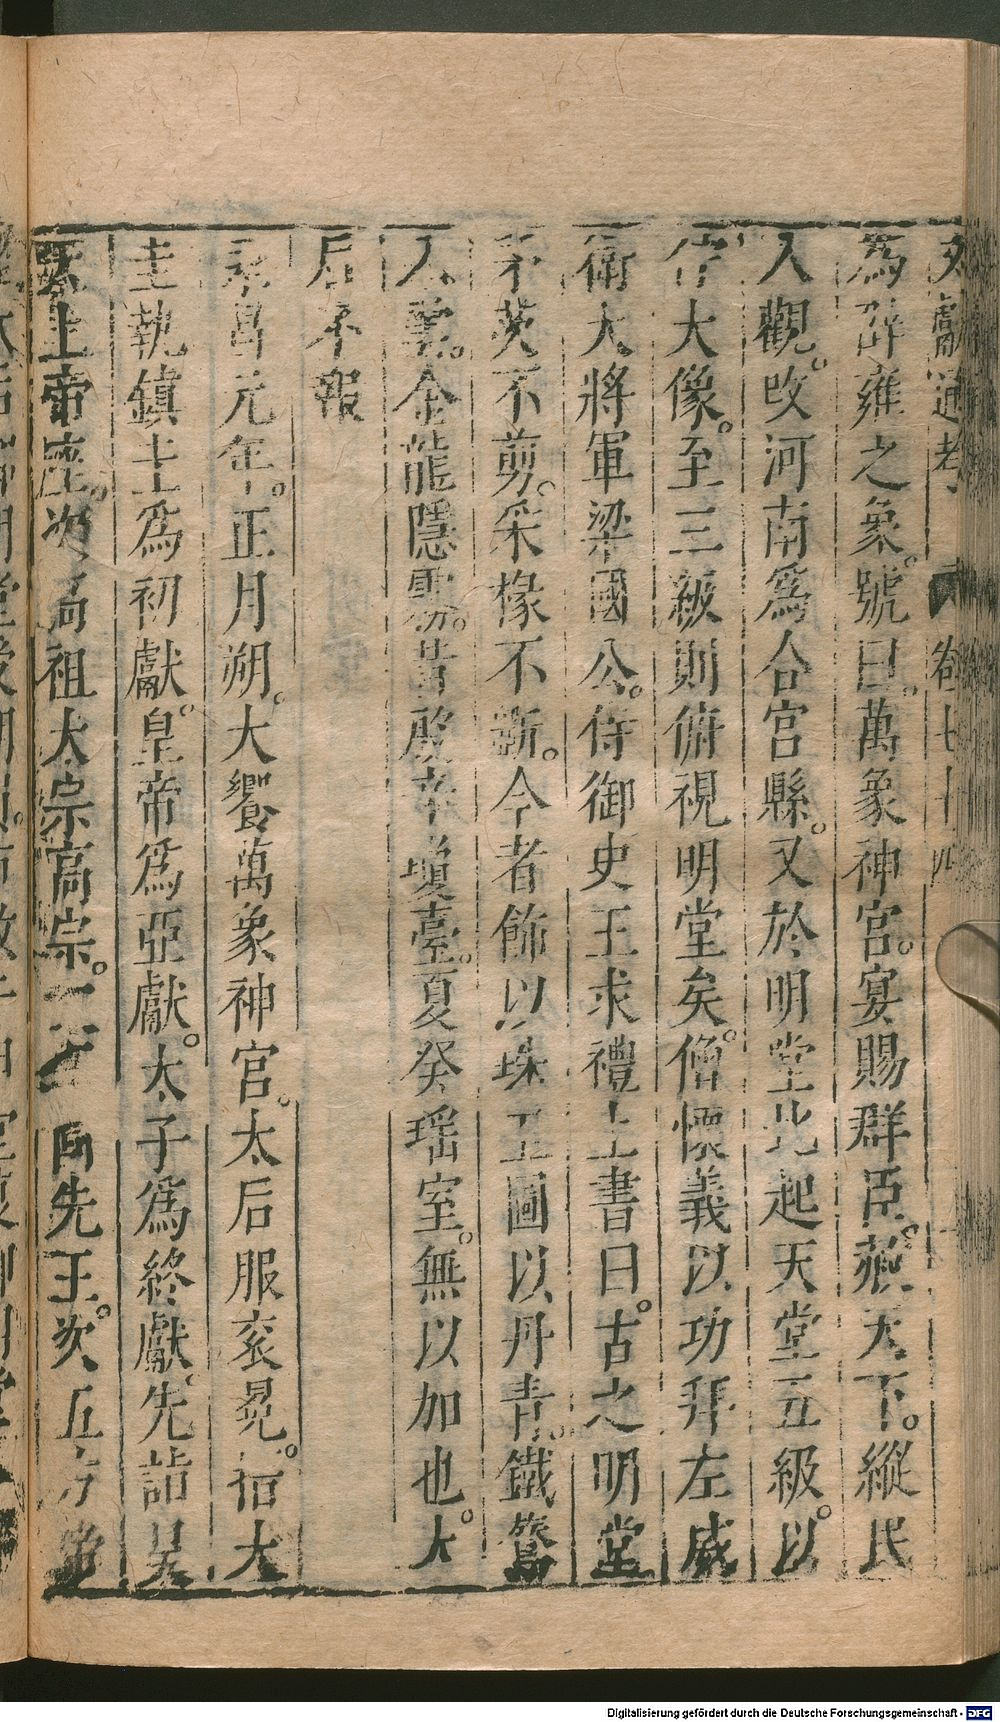 文獻通考 卷七十四
爲辟雍之象。號曰。萬象神宮。宴賜群臣。赦天下。縱民
入觀。改河南爲合宮縣。又於明堂北起天堂五級。以
貯大像。至三級則俯視明堂矣。僧懷義以功拜左威
衛大將軍梁國公。侍御史王求禮上書曰。古之明堂
茅茨不剪。采椽不斲。今者飾以珠玉圖以丹青。鐵鷟
入雲。金龍隱霧。昔殷辛瓊臺。夏癸瑤室。無以加也。太
后不報
永昌元年。正月朔。大饗萬象神宮。太后服袞冕。搢大
圭執鎮圭爲初獻。皇帝爲亞獻。太子爲終獻。先詣昊
天上帝座。次高祖太宗高宗。次 國先王。次五方帝
Digitalisierung gefördert durch die Deutsche Forschungsgemeinschaft - DFG